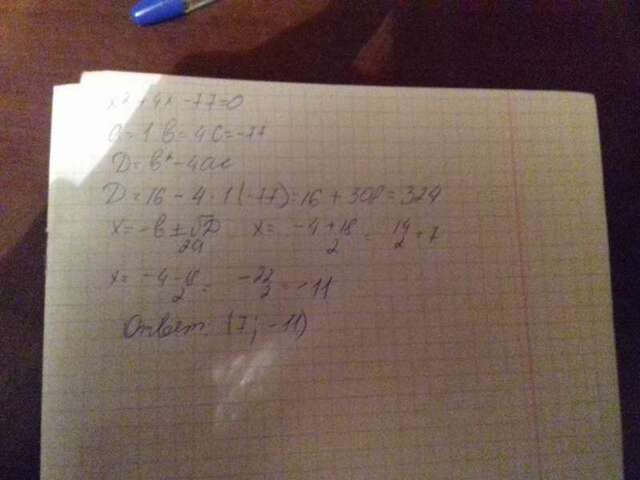 x² + 4x - 77 = 0
a = 1 b = 4 c = -77
D = b² - 4ac
D = 16 - 4 · 1 (-77) = 16 + 308 = 324
x = -b ± √D / 2a x = -4 + 18 / 2 = 14 / 2 = 7
x = -4 - 18 / 2 = -22 / 2 = -11
Ответ: (7; -11)